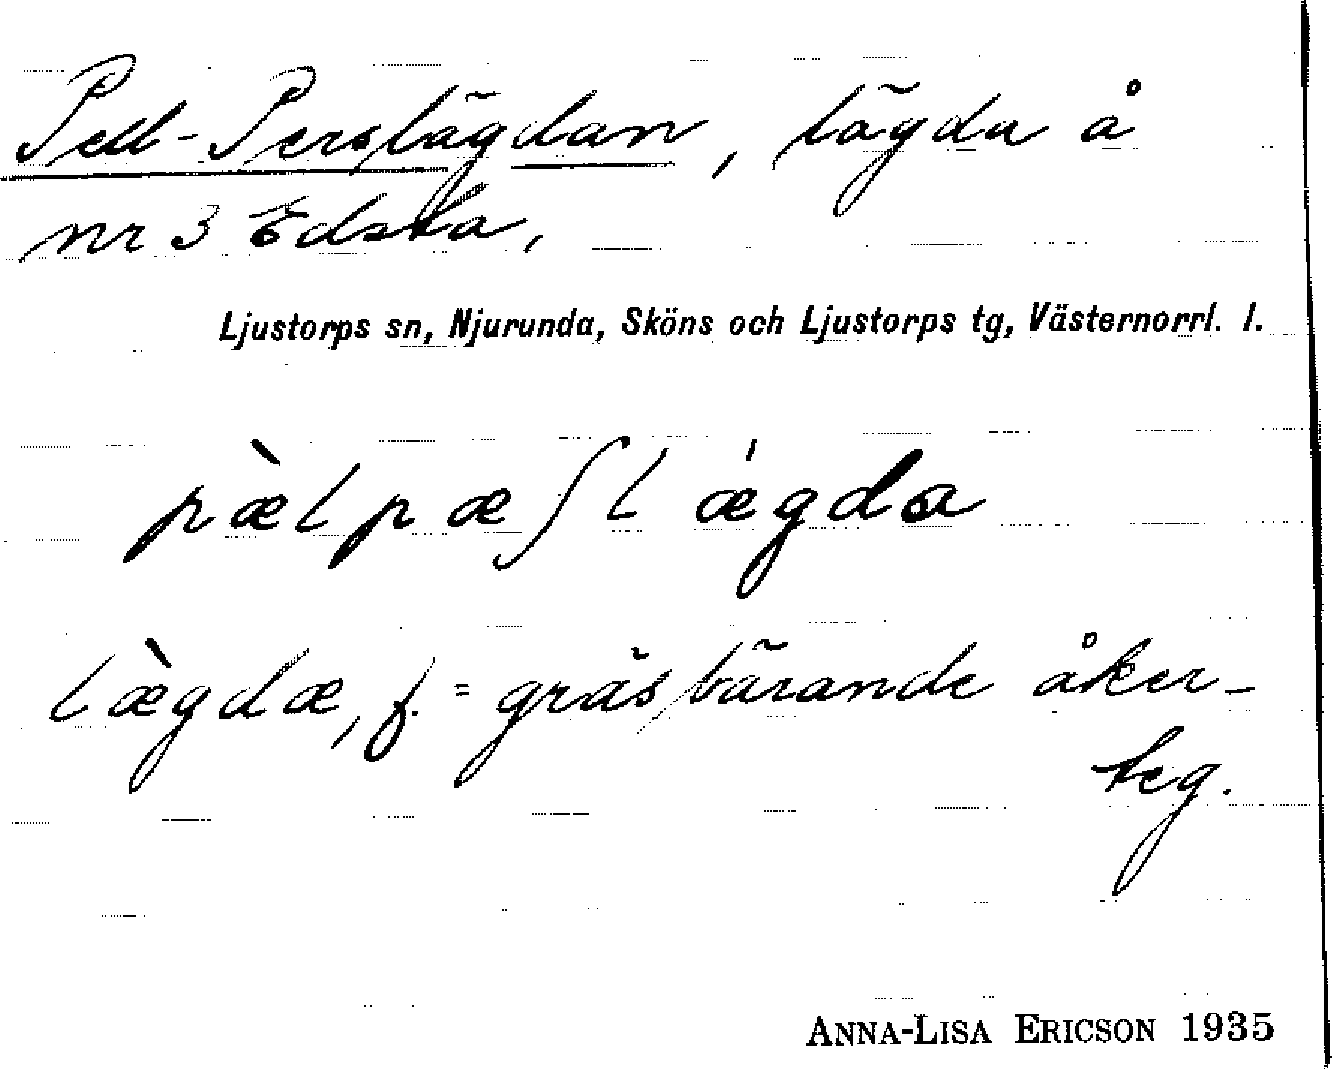 Pell-Perslägdan, lägda å
nr 3 Edsta,
Ljustorps sn, Njurunda, Sköns och Ljustorps tg, Västernorrl. l.
pæ̀lpæʃlǽgda
læ̀gdæ, f. = gräsbärande åker-
teg.
ANNA-LISA ERICSON 1935